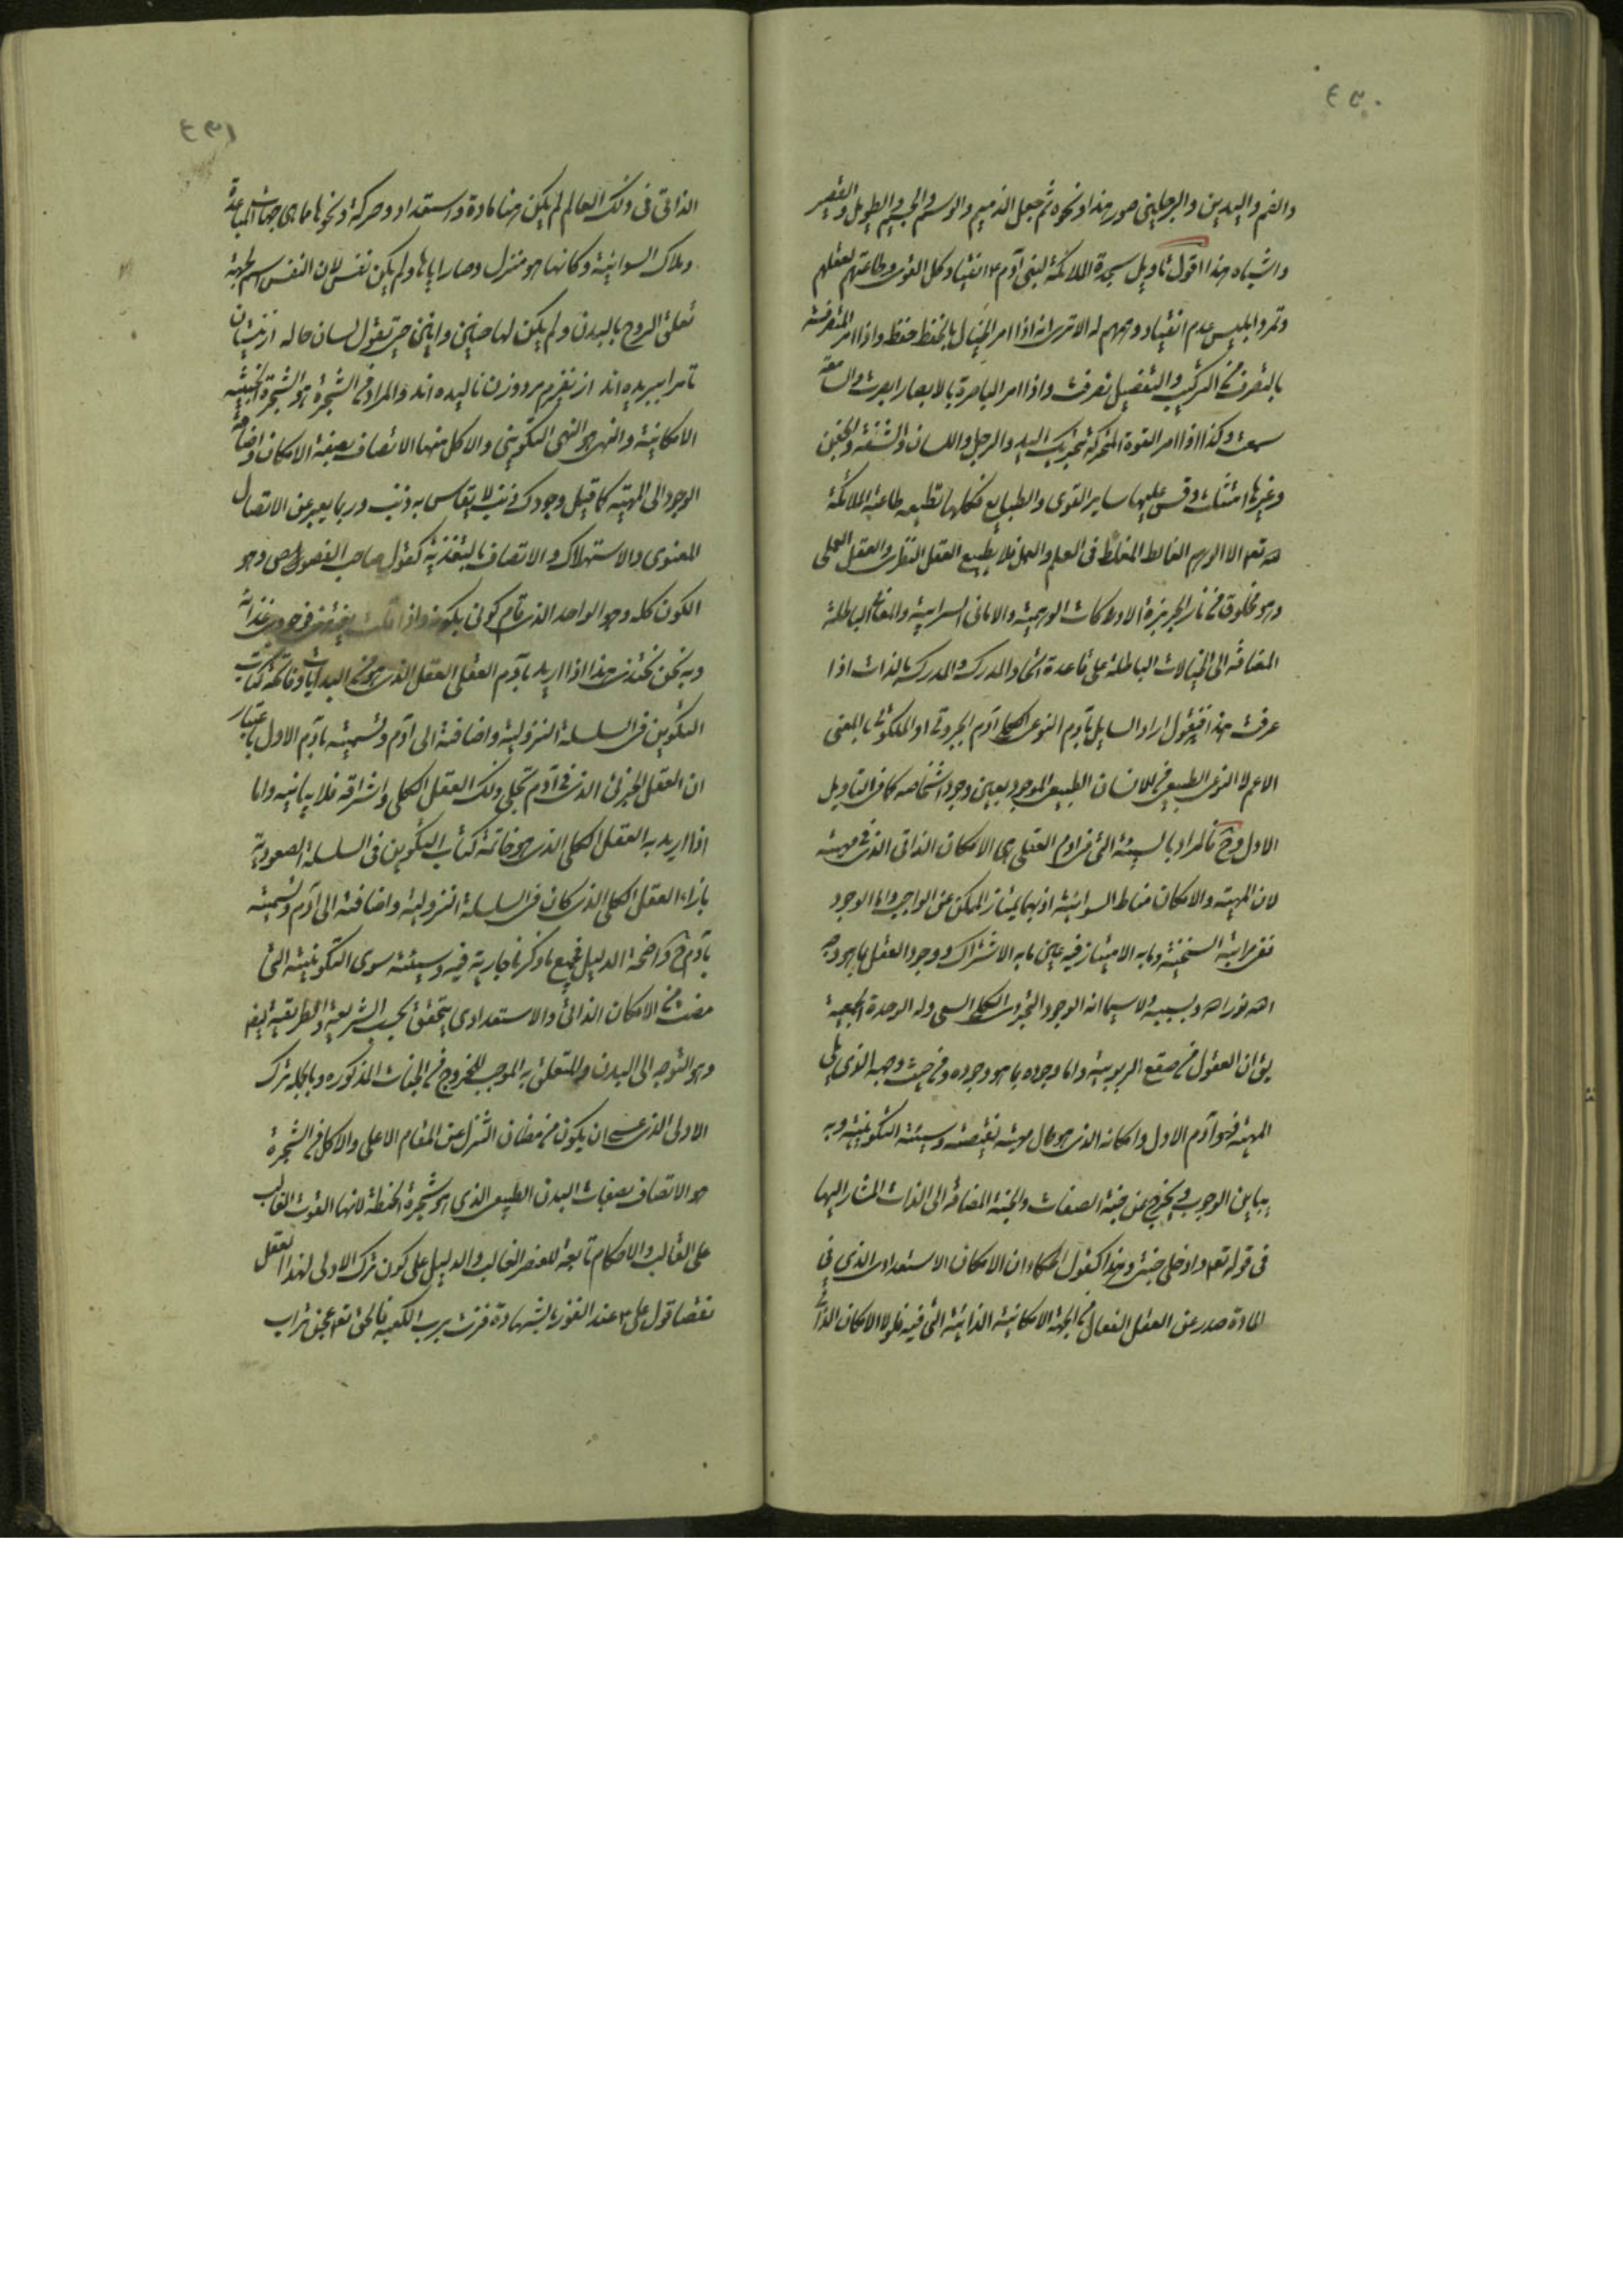 ٤٣٠
والفم واليدين والرجلين صور هذا ونحوه ثم جعل الذميم والوسيم والجسيم والطويل والقصير
واشباه هذا اقول تأويل سجدة الملائكة لبنى آدم ع انقياد كل القوى وطاعتهم لعقلهم
وتمرد ابليس عدم انقياد وهمهم له الا ترى انه اذا امر الخيال بالحفظ حفظ واذا امر المتصرفة
بالتصرف من التركيب والتفصيل تصرفت واذا امر الباصرة بالابصار ابصرت والسامعة
سمعت وكذا اذا امر القوة المحركة بتحريك اليد والرجل واللسان والشفة والجفن
وغيرها امتثلت وقس عليها ساير القوى والطبايع فكلها تطيعه طاعة الملائكة
لله تعم الا الوهم الغالط المغلط فى العلم والعمل فلا يطيع العقل النظرى والعقل العملى
وهو مخلوق من نار الجربزة الادراكات الوهمية والامانى السرابية والمعانى الباطلة
المضافة الى الخيالات الباطلة على قاعدة اتحاد المدرك والمدرك بالذات اذا
عرفت هذا فنقول اراد السايل بآدم النوعى الكلى آدم الجبروتى او الملكوتى بالمعنى
الاعم لا النوعى الطبيعى للانسان الطبيعى الموجود بعين وجود اشخاصه كما فى التأويل
الاول وح فالمراد بالسيئة التى فى آدم العقلى هى الامكان الذاتى الذى فى مهيته
لان المهية والامكان مناط السوائية اذ بهما يمتاز الممكن عن الواجب واما الوجود
ففى مراتبه السنخية وما به الامتياز فيه عين ما به الاشتراك ووجود العقل بما هو وجه
الله نور الله وبسيبه ولا سيما انه الوجود الجبروتى الكلى السعى وله الوحدة الجمعية
يق ان العقول من صقع الربوبية واما وجوده بما هو وجوده ومن حيث وجهه الذى يلى
المهية فهو آدم الاول وامكانه الذى هو حال مهيته نقيصته وسيئته التكوينية وبه
يباين الوجوب ويخرج عن جنة الصفات والجنة المضافة الى الذات المشار اليها
فى قوله تعم وادخلى جنتى وهذا كقول الحكماء ان الامكان الاستعدادى الذى فى
المادة صدر عن العقل الفعال من الجهة الامكانية الذاتية التى فيه فلولا الامكان الذاتى
٤٣١
الذاتى فى ذلك العالم لم يكن هنا مادة واستعداد وحركة ونحوها مما هى جهات المباعدة
وملاك السوائية وكانها هو منزل وصار اياها ولم يكن نفس لان النفس اسم لجهة
تعلق الروح بالبدن ولم يكن لها حنين وانين حتى تقول لسان حاله از نيستان
تا مرا ببريده اند از نفيرم مرد و زن ناليده اند والمراد من الشجرة هو الشجرة الخبيثة
الامكانية والنهى هو النهى التكوينى والاكل منها الاتصاف بصفة الامكان واضافة
الوجود الى المهية كما قيل وجودك ذنب لا يقاس به ذنب وربما يعبر عن الاتصال
المعنوى والاستهلاك والاتصاف بالتغذية كقول صاحب الفصوص وهو
الكون كله وهو الواحد الذى قام كونى بكونه واذا قلت يغتذى فوجودى غذائه
وبه نحن نحتذى هذا اذا اريد بآدم العقلى العقل الذى هو من البدايات وفاتحة كتاب
التكوين فى السلسلة النزولية واضافته الى آدم وتسميته بآدم الاول باعتبار
ان العقل الجزئى الذى فى آدم تجلى ذلك العقل الكلى واشراقه فلا يباينه واما
اذا اريد به العقل الكلى الذى هو خاتمة كتاب التكوين فى السلسلة الصعودية
بازاء العقل الكلى الذى كان فى السلسلة النزولية واضافته الى آدم وتسميته
بآدم ح واضحة الدليل فجميع ما ذكرنا جارية فيه وسيئته سوى التكوينية التى
مضت من الامكان الذاتى والاستعدادى يتحقق بحسب الشريعة والطريقة ايضا
وهو التوجه الى البدن والتعلق به الموجب للخروج من الجنات المذكوره وبالجملة ترك
الاولى الذى عسى ان يكون من مظان التنزل عن المقام الاعلى والاكل من الشجرة
هو الاتصاف بصفات البدن الطبيعى الذى هو شجرة الحنطة لانها القوت الغالب
على القالب والاحكام تابعة للعنصر الغالب والدليل على كون ترك الاولى لهذا العقل
نقصا قول على ع عند الفوز بالشهادة فزت برب الكعبة فالحق تعم عجن تراب